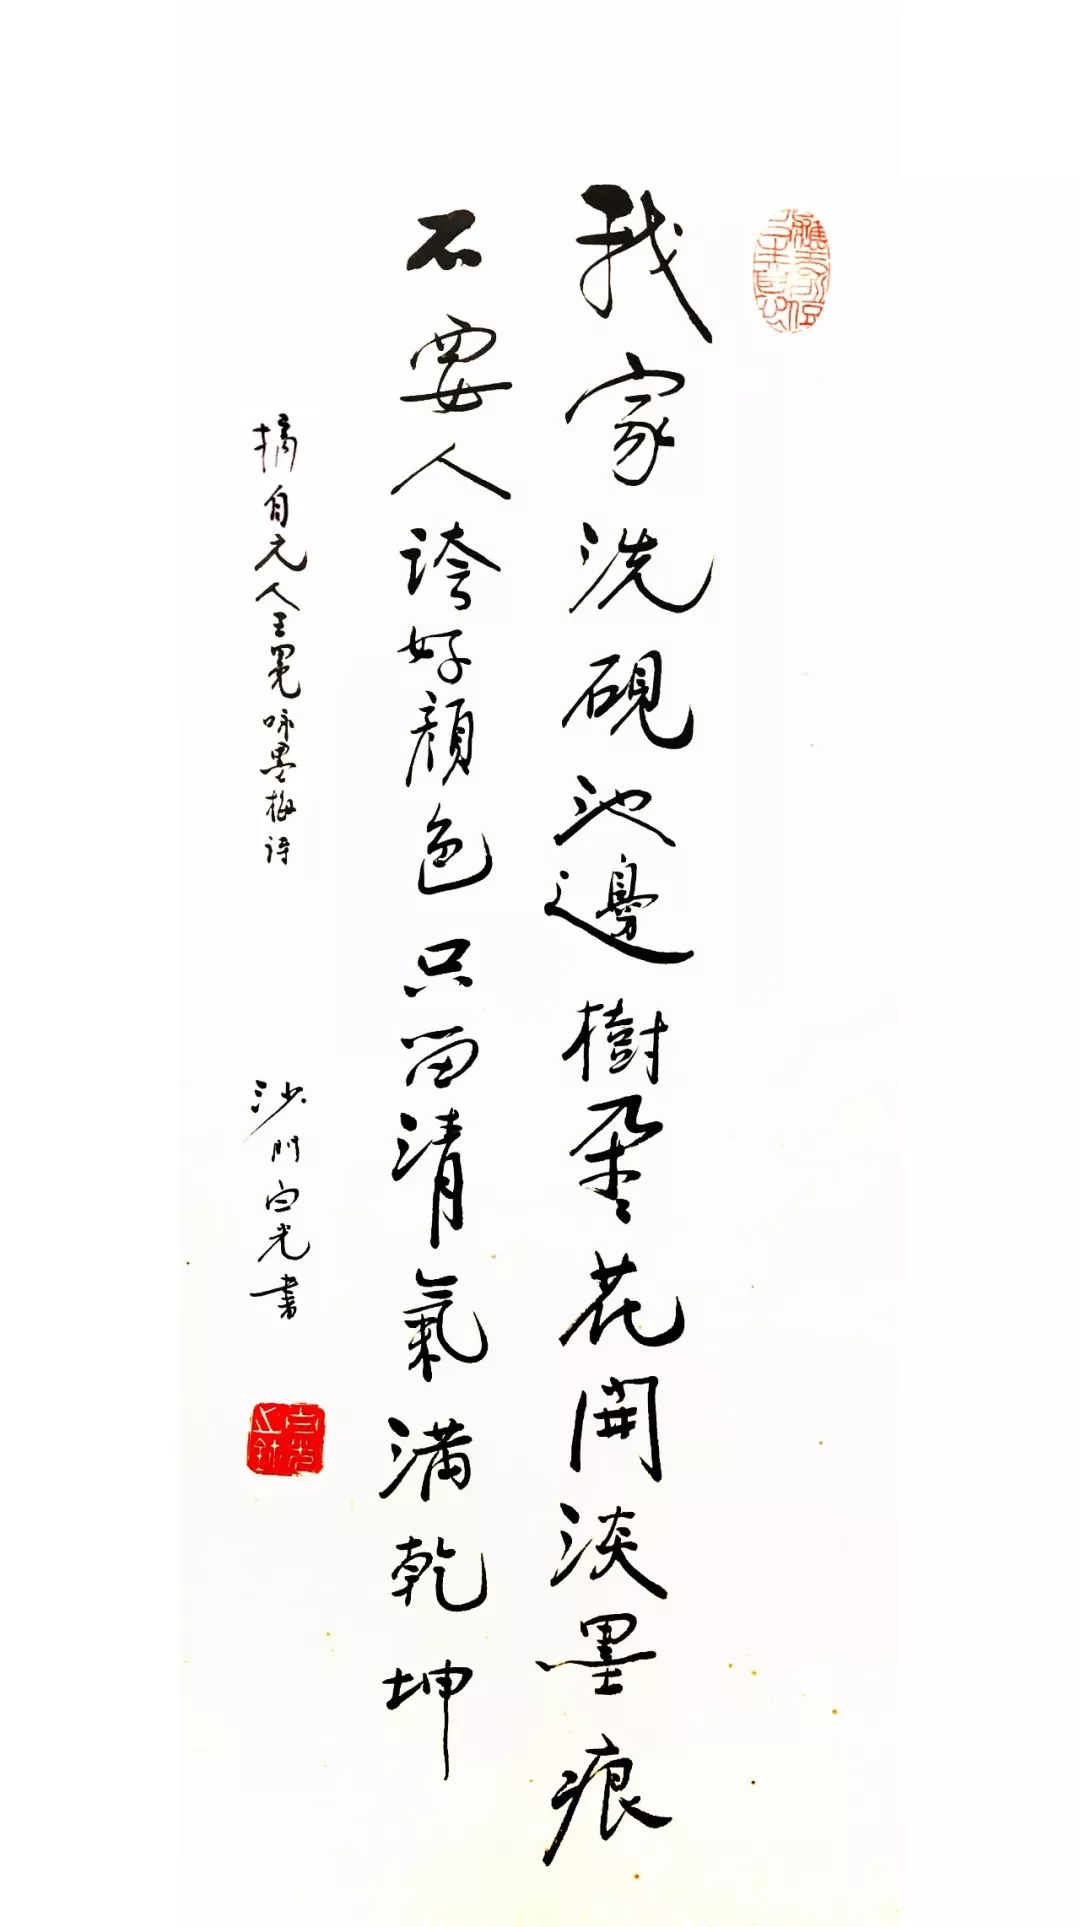 應無所住而生其心
我家洗硯池邊樹朵々花開淡墨痕
不要人誇好顏色只留清氣滿乾坤
摘自元人王冕咏墨梅詩 沙門白光書